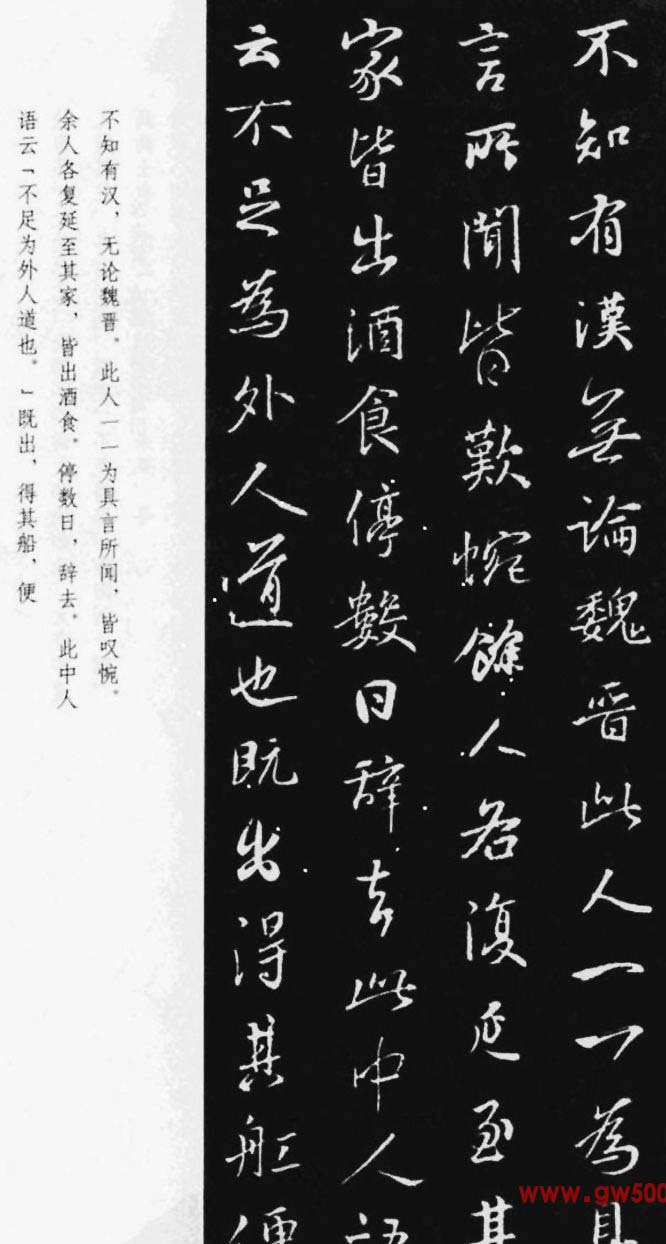 不知有漢無論魏晋此人一一為具
言所聞皆歎惋餘人各復延至其
家皆出酒食停數日辞去此中人語
云不足為外人道也既出得其舡便
不知有汉，无论魏晋。此人一一为具言所闻，皆叹惋。
余人各复延至其家，皆出酒食。停数日，辞去。此中人
语云「不足为外人道也。」既出，得其船，便
www.gw500